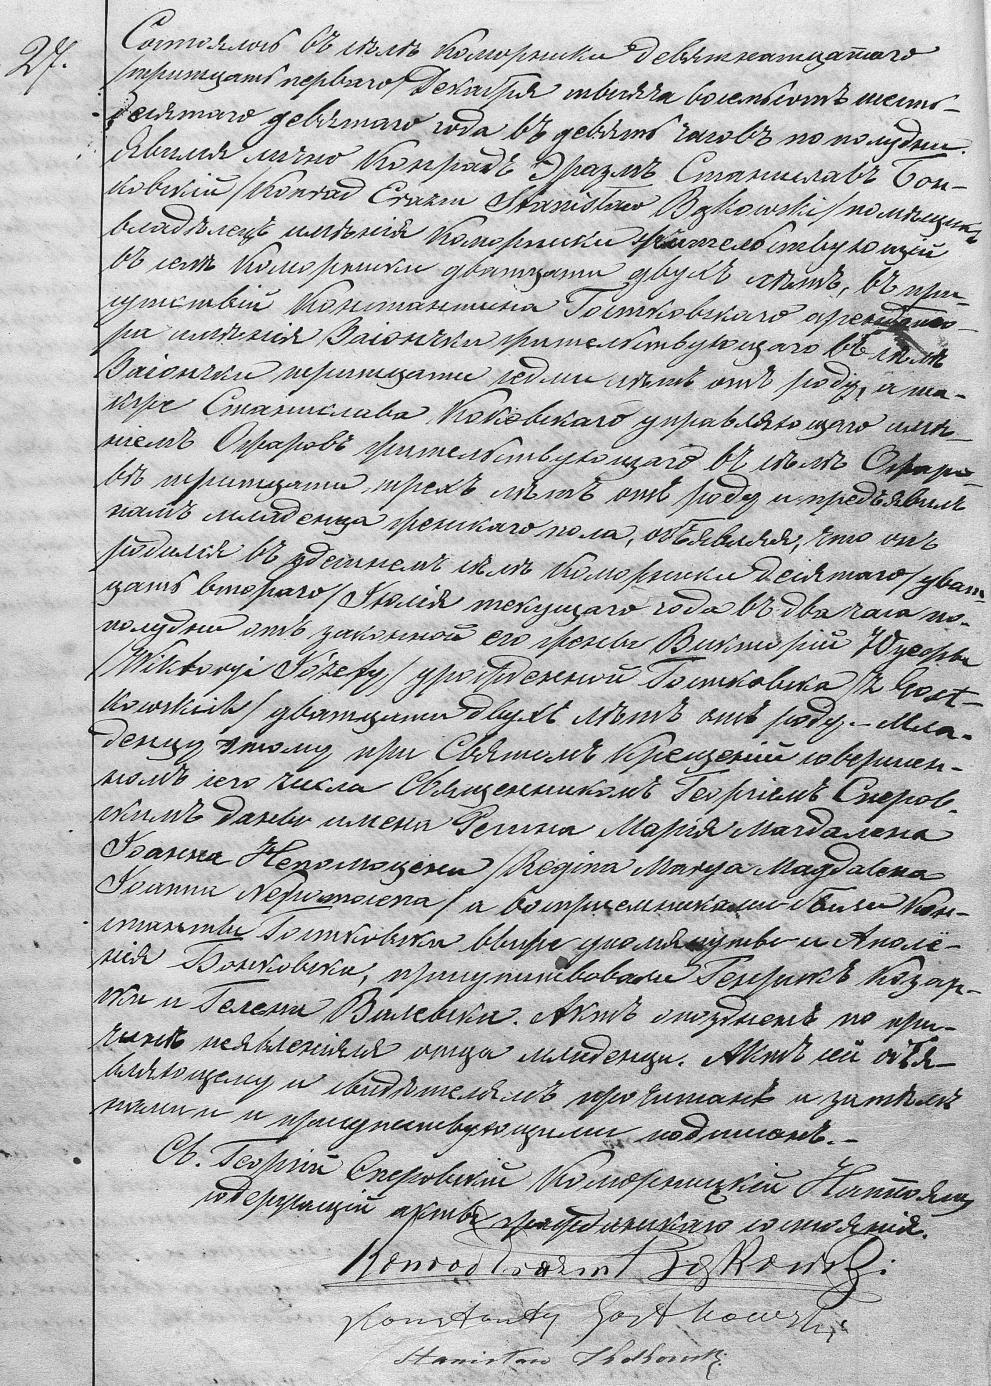 27.
Состоялось въ селѣ Коморники девятнатцатаго
/тритцать перваго/ Декабря тысяча восемьсотъ шесть-
десятаго девятаго года въ девять часовъ по полудни.
Явился лично Конрадъ Эразмъ Станиславъ Бон-
ковскій /Konrad Erazm Stanisław Bąkowski/ помѣщикъ
владѣлецъ имѣнія Коморники жительствующій
въ селѣ Коморники дватцати двухъ лѣтъ, въ при-
сутствіи Константина Гостковскаго арендато-
ра имѣнія Заіончки жительствующаго въ селѣ
Заіончки тритцати седми лѣтъ отъ роду, а так-
же Станислава управляющаго имѣ-
ніемъ Ожаровъ жительствующаго въ селѣ Ожаро-
въ тритцати трехъ лѣтъ отъ роду и предъявилъ
намъ младенца женскаго пола, объявляя, что онъ
родился въ здешнемъ селѣ Коморники десятаго /дват-
цать втораго/ Іюля текущаго года въ два часа по-
полудни отъ законной его жены Викторіи Юзефы
/Wiktoryi Józefy/ урожденной Гостковска /z Gost-
kowskich/ дватцати двухъ лѣтъ отъ роду. – Мла-
денцу этому при Святомъ Крещеніи совершен-
номъ сего числа Священникомъ Георгіемъ Сперов-
скимъ даны имена Регина Марія Магдалена
Іоанна Непомоцена /Regina Marya Magdalena
Joanna Nepomocena/ а воспріемниками были Кон-
стантый Гостковски выше упомянутый и Аполё-
нія Бонковска, присутствовали Генрикъ Козар-
ски и Гелена Валевска. Актъ опозднёнъ по при-
чинѣ неявленія отца младенца. Актъ сей объя-
вляющему и свидѣтелямъ прочитанъ и затѣмъ
нами и присутствующими подписанъ. –
Св. Георгій Сперовскій Коморницкій Настоятель
содержащій акты гражданскаго состоянія.
Konrad Erazm Bąkowski
Konstanty Gostkowski
Stanisław